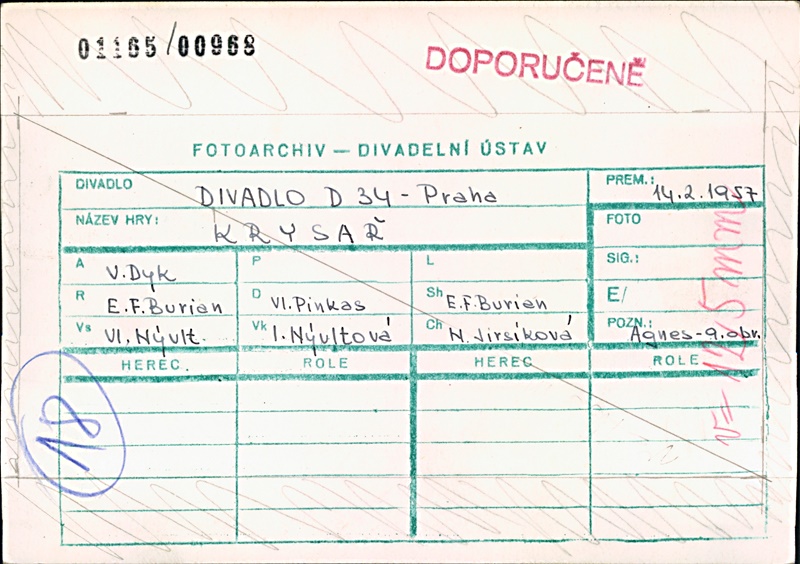 01165/00968
DOPORUČENĚ
FOTOARCHIV — DIVADELNÍ ÚSTAV
DIVADLO DIVADLO D 34 - Praha
PREM.: 14.2.1957
NÁZEV HRY: KRYSAŘ
FOTO
A V. Dyk P L
SIG.:
R E.F. Burian D Vl. Pinkas Sh E.F. Burian
E/
Vs Vl. Nývlt. Vk I. Nývltová Ch N. Jirsíková
POZN.: Agnes-9.obr.
HEREC. ROLE HEREC ROLE
18
v= 125 mm